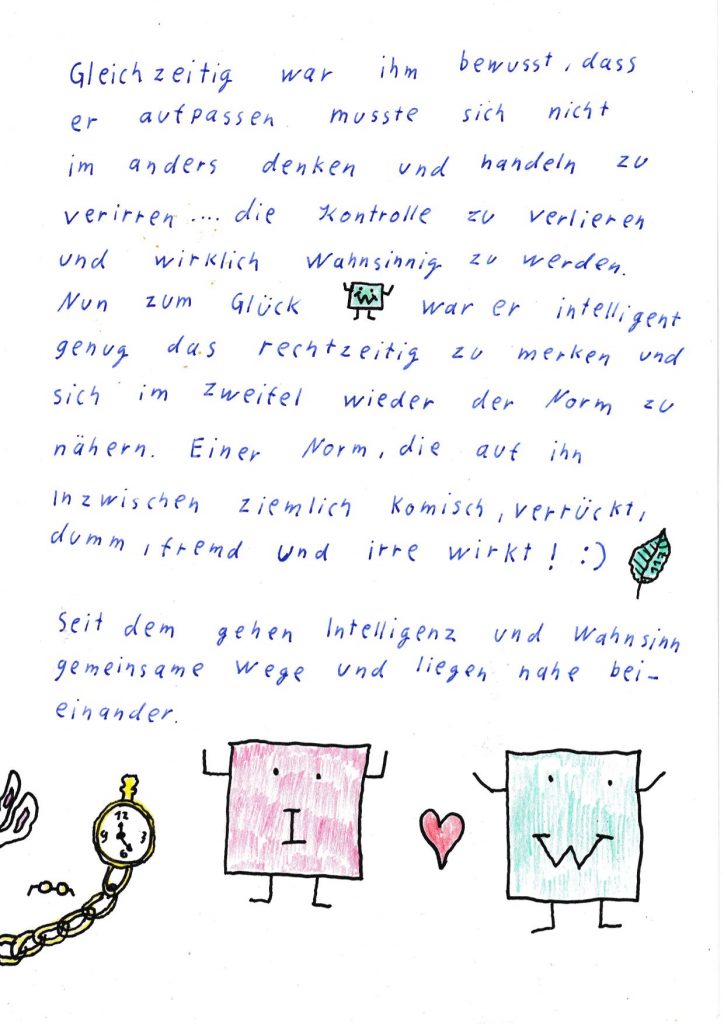 Gleichzeitig war ihm bewusst, dass
er aufpassen musste sich nicht
im anders denken und handeln zu
verirren.... die Kontrolle zu verlieren
und wirklich Wahnsinnig zu werden.
Nun zum Glück W war er intelligent
genug das rechtzeitig zu merken und
sich im Zweifel wieder der Norm zu
nähern. Einer Norm, die auf ihn
Inzwischen ziemlich Komisch, verrückt,
dumm, fremd und irre wirkt! :)
Seit dem gehen Intelligenz und Wahnsinn
gemeinsame Wege und liegen nahe bei-
einander.
12
9 3
6
I
W